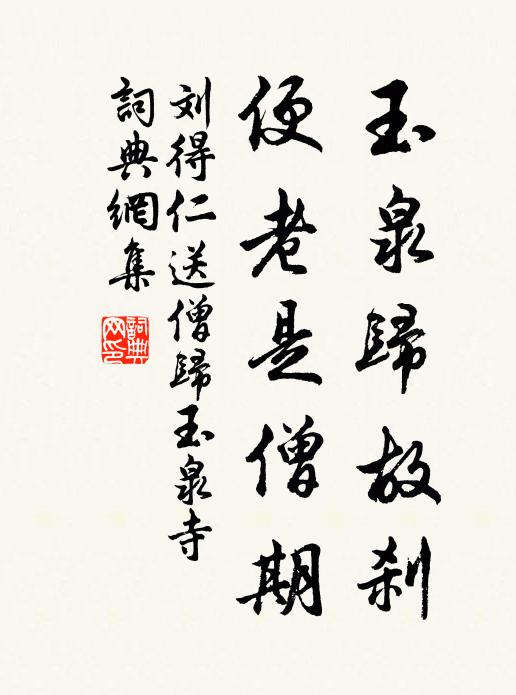 玉泉歸故刹
便老是僧期
刘得仁送僧歸玉泉寺
詞典網集
詞典网印